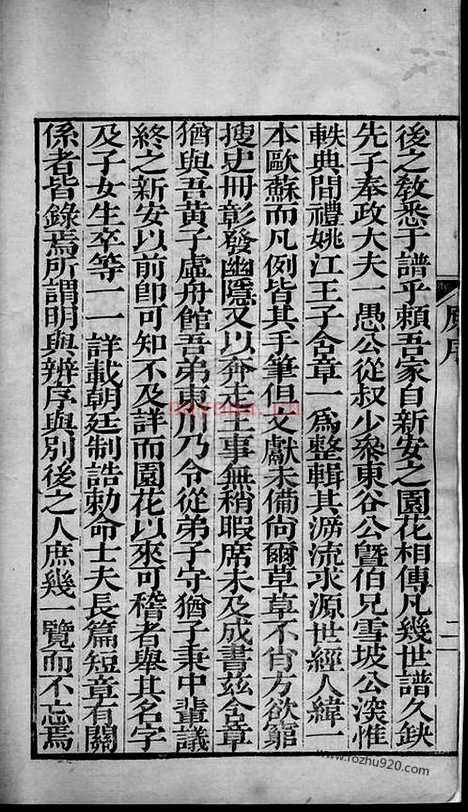 後之教悉于譜乎賴吾家自新安之園花相傳凡幾世譜久缺
先子奉政大夫一愚公從叔少叅東谷公曁伯兄雪坡公深惟
軼典間禮姚江王子含章一爲整輯其泝流求源世經人緯一
本歐蘇而凡例皆其手筆但文獻未備尙爾草草不肖方欲窮
捜史冊彰發幽隱又以奔走王事無稍暇席未及成書茲含章
猶與吾黃子虛舟館吾弟東川乃令從弟子守猶子秉中輩議
終之新安以前卽可知不及詳而園花以來可稽者舉其名字
及子女生卒等一一詳載朝廷制誥勅命士夫長篇短章有關
係者皆錄焉所謂明與辨序與別後之人庶幾一覽而不忘焉
序
二
nayona.cn
www.rozhu920.com